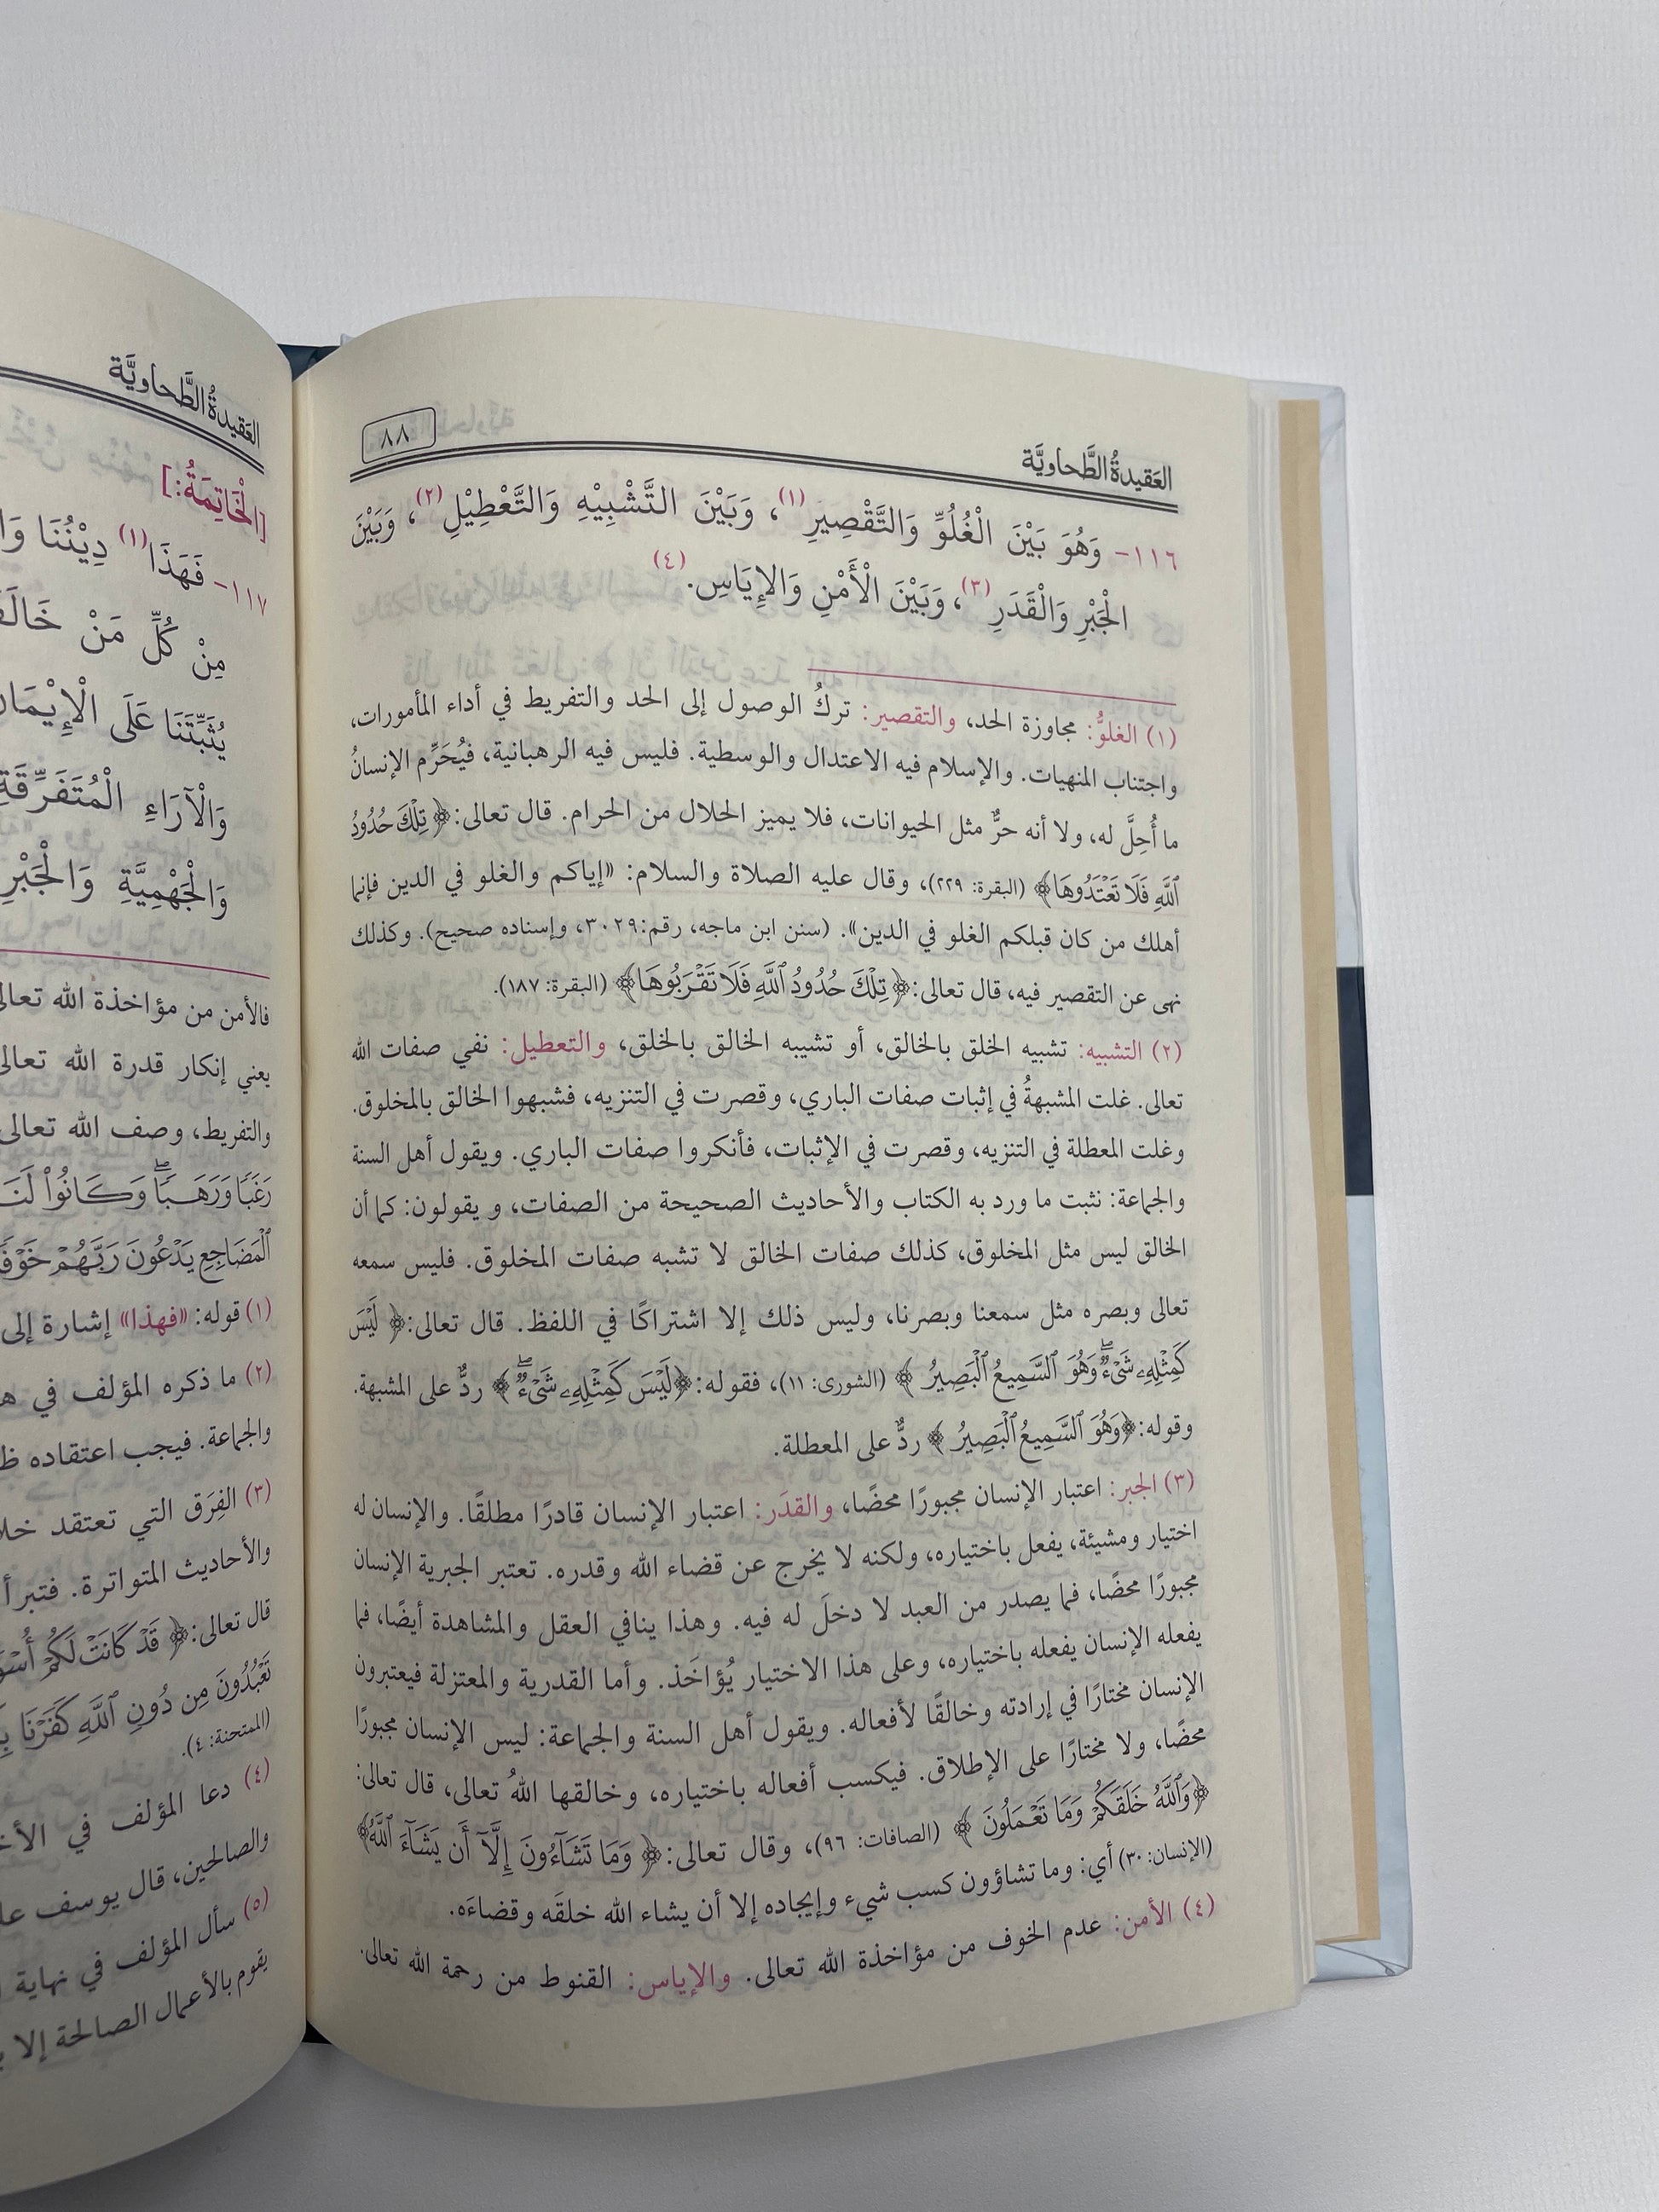 العَقِيدةُ الطَّحاويَّة
٨٨
١١٦- وَهُوَ بَيْنَ الْغُلُوِّ وَالتَّقْصِيرِ(١)، وَبَيْنَ التَّشْبِيْهِ وَالتَّعْطِيْلِ(٢)، وَبَيْنَ
الْجَبْرِ وَالْقَدَرِ(٣)، وَبَيْنَ الْأَمْنِ وَالإِيَاسِ.(٤)
(١) الغلوُّ: مجاوزة الحد، والتقصير: تركُ الوصول إلى الحد والتفريط في أداء المأمورات،
واجتناب المنهيات. والإسلام فيه الاعتدال والوسطية. فليس فيه الرهبانية، فيُحَرِّم الإنسانُ
ما أُحِلَّ له، ولا أنه حرٌّ مثل الحيوانات، فلا يميز الحلال من الحرام. قال تعالى: ﴿تِلْكَ حُدُودُ
ٱللَّهِ فَلَا تَعْتَدُوهَا﴾ (البقرة: ٢٢٩)، وقال عليه الصلاة والسلام: «إياكم والغلو في الدين فإنما
أهلك من كان قبلكم الغلو في الدين». (سنن ابن ماجه، رقم:٣٠٢٩، وإسناده صحيح). وكذلك
نهى عن التقصير فيه، قال تعالى: ﴿تِلْكَ حُدُودُ ٱللَّهِ فَلَا تَقْرَبُوهَا﴾ (البقرة: ١٨٧).
(٢) التشبيه: تشبيه الخلق بالخالق، أو تشبيه الخالق بالخلق، والتعطيل: نفي صفات الله
تعالى. غلت المشبهةُ في إثبات صفات الباري، وقصرت في التنزيه، فشبهوا الخالق بالمخلوق.
وغلت المعطلة في التنزيه، وقصرت في الإثبات، فأنكروا صفات الباري. ويقول أهل السنة
والجماعة: نثبت ما ورد به الكتاب والأحاديث الصحيحة من الصفات، و يقولون: كما أن
الخالق ليس مثل المخلوق، كذلك صفات الخالق لا تشبه صفات المخلوق. فليس سمعه
تعالى وبصره مثل سمعنا وبصرنا، وليس ذلك إلا اشتراكًا في اللفظ. قال تعالى: ﴿لَيْسَ
كَمِثْلِهِۦ شَىْءٌ ۖ وَهُوَ ٱلسَّمِيعُ ٱلْبَصِيرُ﴾ (الشورى: ١١)، فقوله: ﴿لَيْسَ كَمِثْلِهِۦ شَىْءٌ ۖ﴾ ردٌّ على المشبهة.
وقوله: ﴿وَهُوَ ٱلسَّمِيعُ ٱلْبَصِيرُ﴾ ردٌّ على المعطلة.
(٣) الجبر: اعتبار الإنسان مجبورًا محضًا، والقدَر: اعتبار الإنسان قادرًا مطلقًا. والإنسان له
اختيار ومشيئة، يفعل باختياره، ولكنه لا يخرج عن قضاء الله وقدره. تعتبر الجبرية الإنسان
مجبورًا محضًا، فما يصدر من العبد لا دخلَ له فيه. وهذا ينافي العقل والمشاهدة أيضًا، فما
يفعله الإنسان يفعله باختياره، وعلى هذا الاختيار يُؤاخَذ. وأما القدرية والمعتزلة فيعتبرون
الإنسان مختارًا في إرادته وخالقًا لأفعاله. ويقول أهل السنة والجماعة: ليس الإنسان مجبورًا
محضًا، ولا مختارًا على الإطلاق. فيكسب أفعاله باختياره، وخالقها اللهُ تعالى، قال تعالى:
﴿وَٱللَّهُ خَلَقَكُمْ وَمَا تَعْمَلُونَ﴾ (الصافات: ٩٦)، وقال تعالى: ﴿وَمَا تَشَآءُونَ إِلَّآ أَن يَشَآءَ ٱللَّهُ﴾
(الإنسان: ٣٠) أي: وما تشاؤون كسب شيء وإيجاده إلا أن يشاء الله خلقَه وقضاءَه.
(٤) الأمن: عدم الخوف من مؤاخذة الله تعالى. والإياس: القنوط من رحمة الله تعالى.
العَقِيدةُ الطَّحاويَّة
[الْخَاتِمَةُ:]
١١٧- فَهَذَا(١) دِيْنُنَا
مِنْ كُلِّ مَنْ
يُثَبِّتَنَا عَلَى
وَالْآرَاءِ الْمُتَفَرِّقَةِ
وَالْجَهْمِيَّةِ
فالأمن من مؤاخذة الله
يعني إنكار قدرة الله
والتفريط، وصف الله
رَغَبًا وَرَهَبًا ۖ وَكَانُوا۟
ٱلْمَضَاجِعِ يَدْعُونَ رَبَّهُمْ
(١) قوله: «فهذا» إشارة إلى
(٢) ما ذكره المؤلف في
والجماعة. فيجب اعتقاده
(٣) الفِرَق التي تعتقد
والأحاديث المتواترة.
قال تعالى: ﴿قَدْ كَانَتْ لَكُمْ
تَعْبُدُونَ مِن دُونِ ٱللَّهِ كَفَرْنَا
(الممتحنة: ٤).
(٤) دعا المؤلف في
والصالحين، قال يوسف
(٥) سأل المؤلف في نهاية
يقوم بالأعمال الصالحة إلا